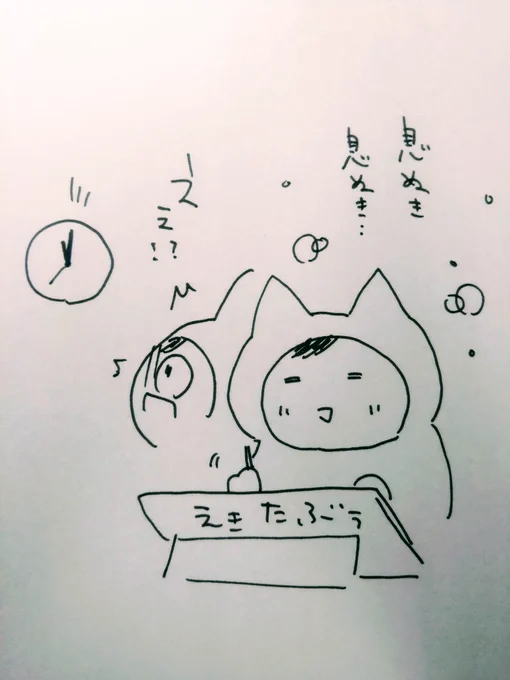 息ぬき
息ぬき…
え
え!?
えきたぶぅ